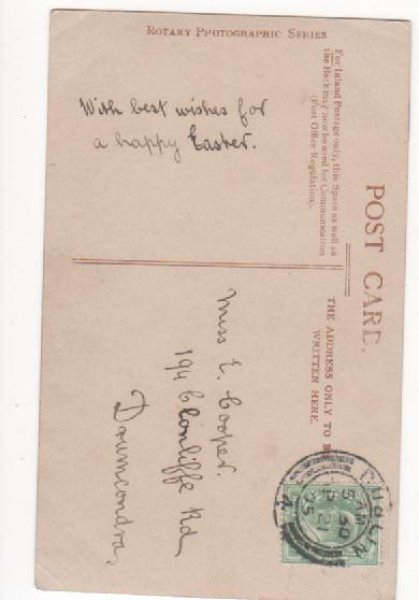 ROTARY PHOTOGRAPHIC SERIES
POST CARD.
For Inland Postage only, this Space as well as
the Back may now be used for Communication
(Post Office Regulation).
THE ADDRESS ONLY TO
WRITTEN HERE.
With best wishes for
a happy Easter.
Miss E. Cooper.
194 Clonliffe Rd
Drumcondra,
DUBLIN
5 AM
21
05